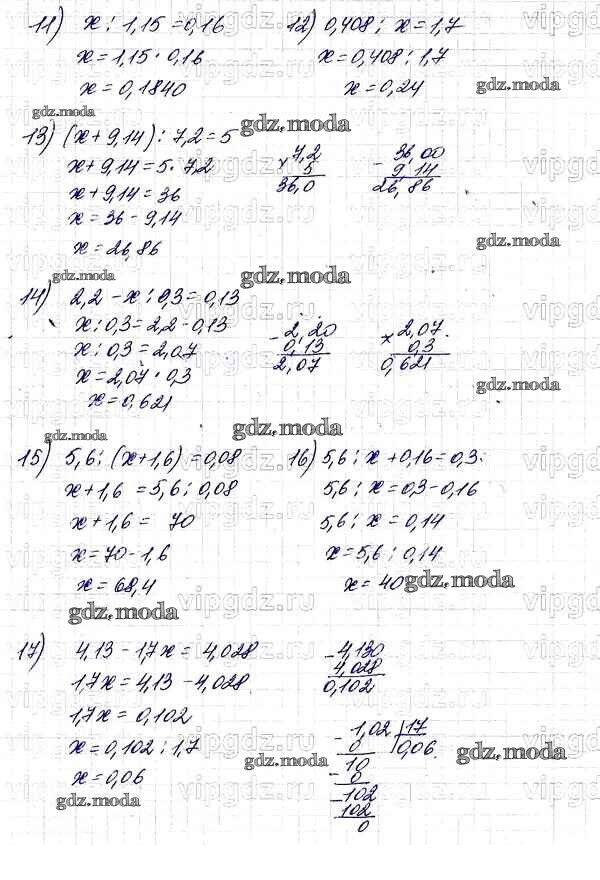 11) x : 1,15 = 0,16
x = 1,15 · 0,16
x = 0,1840
12) 0,408 : x = 1,7
x = 0,408 : 1,7
x = 0,24
gdz.moda
gdz.moda
gdz.moda
13) (x + 9,14) : 7,2 = 5
x + 9,14 = 5 · 7,2
x + 9,14 = 36
x = 36 - 9,14
x = 26,86
× 7,2
5
36,0
- 36,00
9,14
26,86
gdz.moda
gdz.moda
gdz.moda
14) 2,2 - x : 0,3 = 0,13
x : 0,3 = 2,2 - 0,13
x : 0,3 = 2,07
x = 2,07 · 0,3
x = 0,621
- 2,20
0,13
2,07
× 2,07
0,3
0,621
gdz.moda
gdz.moda
gdz.moda
15) 5,6 : (x + 1,6) = 0,08
x + 1,6 = 5,6 : 0,08
x + 1,6 = 70
x = 70 - 1,6
x = 68,4
16) 5,6 : x + 0,16 = 0,3
5,6 : x = 0,3 - 0,16
5,6 : x = 0,14
x = 5,6 : 0,14
x = 40
gdz.moda
gdz.moda
17) 4,13 - 1,7x = 4,028
1,7x = 4,13 - 4,028
1,7x = 0,102
x = 0,102 : 1,7
x = 0,06
- 4,130
4,028
0,102
- 1,02 | 17
0 0,06
10
- 0
- 102
102
0
gdz.moda
gdz.moda
gdz.moda
vipgdz.ru